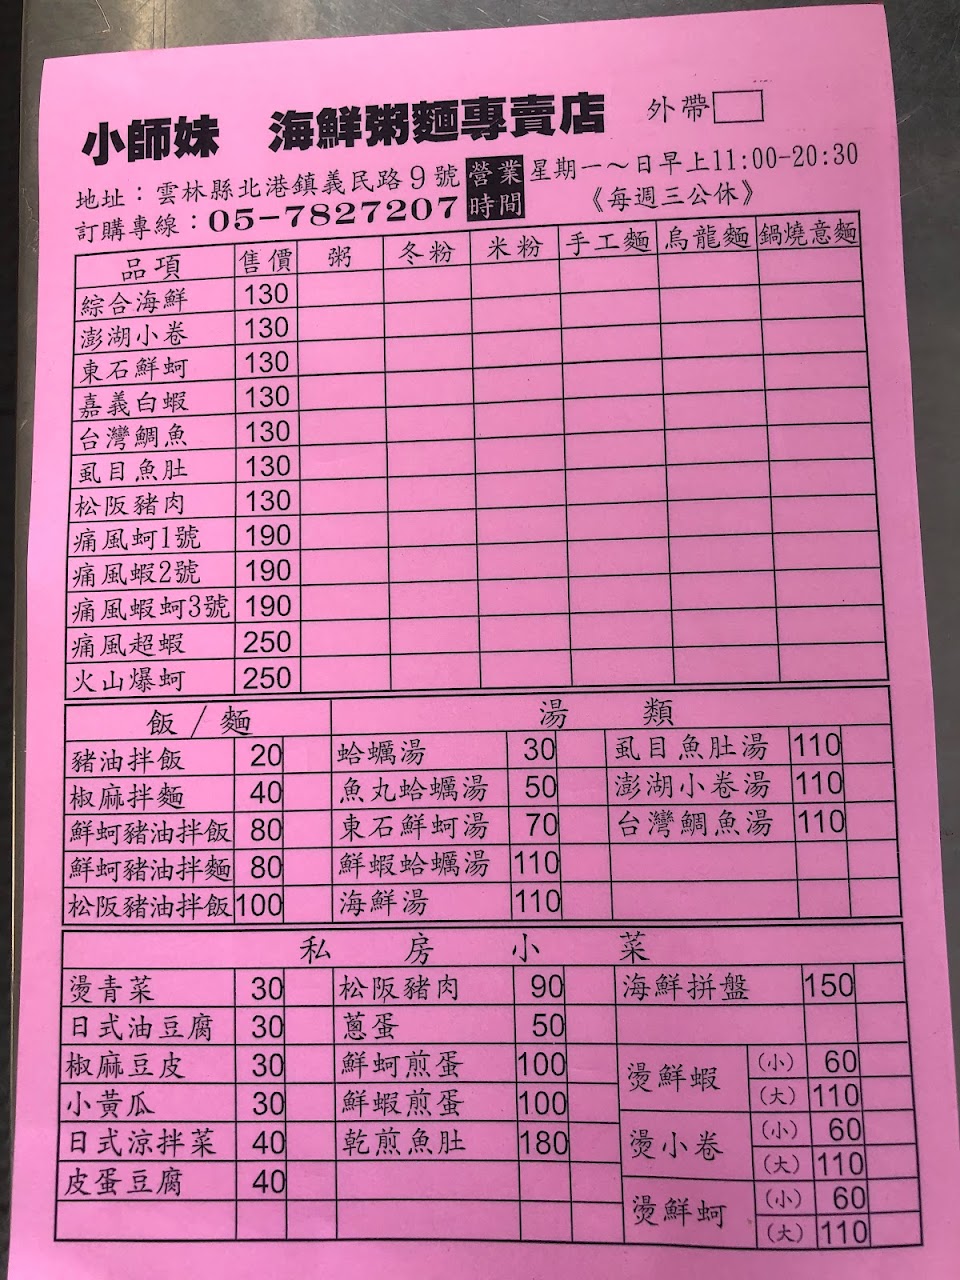 小師妹 海鮮粥麵專賣店 外帶
地址：雲林縣北港鎮義民路9號 營業時間 星期一～日早上11:00-20:30
訂購專線：05-7827207 《每週三公休》
品項 售價 粥 冬粉 米粉 手工麵 烏龍麵 鍋燒意麵
綜合海鮮 130
澎湖小卷 130
東石鮮蚵 130
嘉義白蝦 130
台灣鯛魚 130
虱目魚肚 130
松阪豬肉 130
痛風蚵1號 190
痛風蝦2號 190
痛風蝦蚵3號 190
痛風超蝦 250
火山爆蚵 250
飯/麵 湯類
豬油拌飯 20 蛤蠣湯 30 虱目魚肚湯 110
椒麻拌麵 40 魚丸蛤蠣湯 50 澎湖小卷湯 110
鮮蚵豬油拌飯 80 東石鮮蚵湯 70 台灣鯛魚湯 110
鮮蚵豬油拌麵 80 鮮蝦蛤蠣湯 110
松阪豬油拌飯 100 海鮮湯 110
私房小菜
燙青菜 30 松阪豬肉 90 海鮮拼盤 150
日式油豆腐 30 蔥蛋 50
椒麻豆皮 30 鮮蚵煎蛋 100 燙鮮蝦 (小) 60
小黃瓜 30 鮮蝦煎蛋 100 (大) 110
日式涼拌菜 40 乾煎魚肚 180 燙小卷 (小) 60
(大) 110
皮蛋豆腐 40 燙鮮蚵 (小) 60
(大) 110